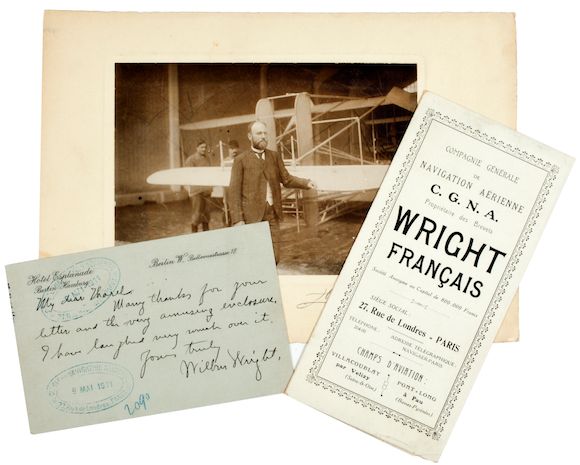 Hotel Esplanade
Berlin Hamburg
Berlin W. Bellevuestrasse 17
My dear
Many thanks for your
letter and the very amusing enclosure.
I have laughed very much over it.
Yours truly
Wilbur Wright.
9 MAI 1911
COMPAGNIE GÉNÉRALE
DE
NAVIGATION AÉRIENNE
C. G. N. A.
Propriétaire des Brevets
WRIGHT
FRANÇAIS
Société Anonyme au Capital de 800.000 Francs
SIÈGE SOCIAL:
27, Rue de Londres - PARIS
TÉLÉPHONE:
ADRESSE TÉLÉGRAPHIQUE:
NAVIGAER-PARIS
CHAMPS D'AVIATION:
VILLACOUBLAY
par Velizy
(Seine-et-Oise)
PONT-LONG
à Pau
(Basses-Pyrénées)